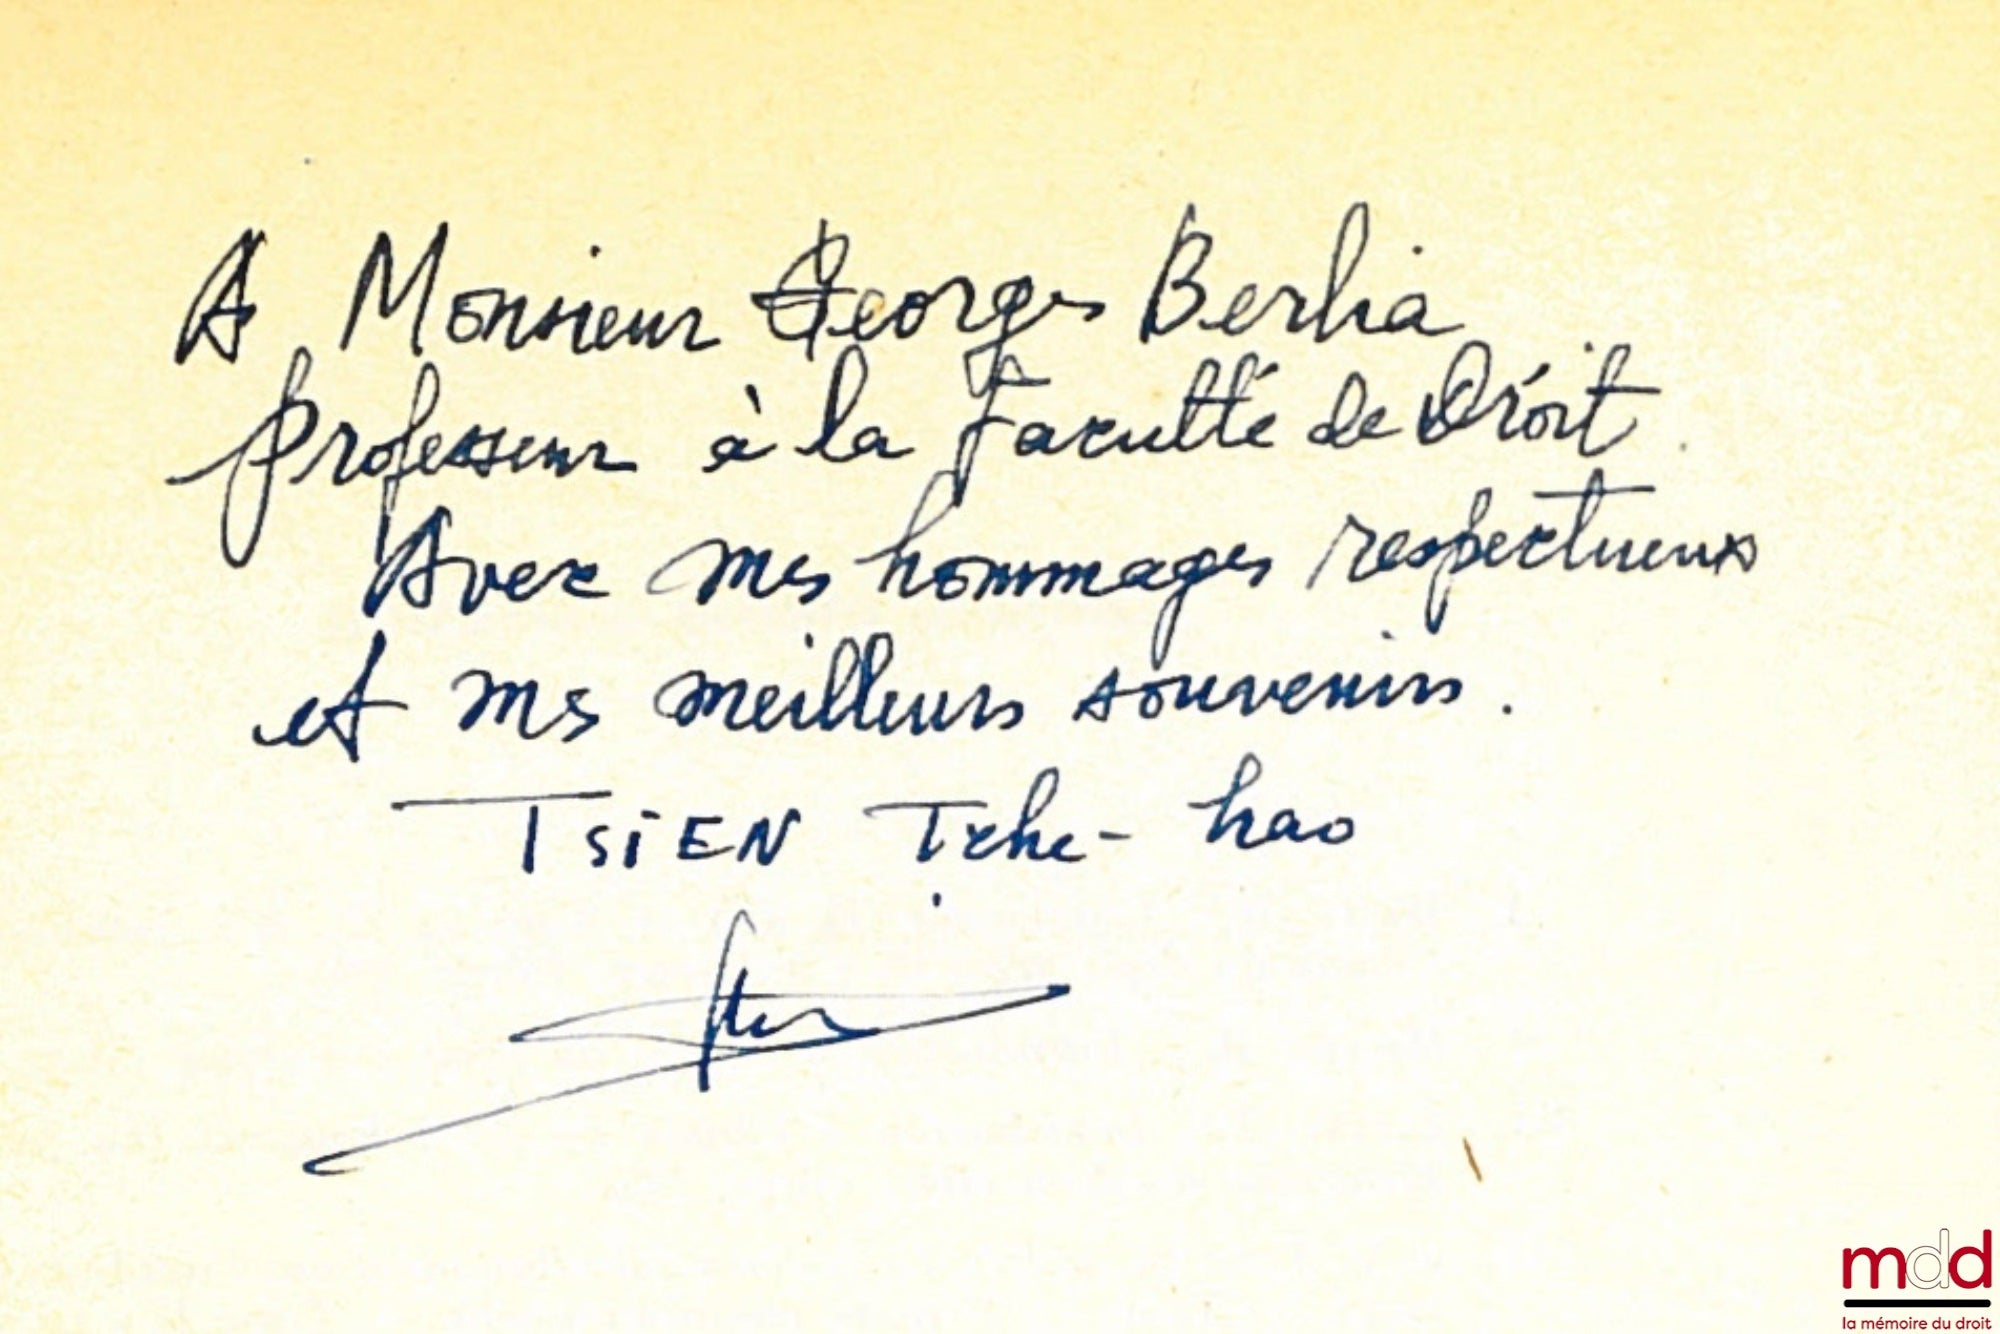 A Monsieur Georges Berlia
professeur à la Faculté de Droit
Avec mes hommages respectueux
et mes meilleurs souvenirs.
TSIEN Tche-hao
mdd
la mémoire du droit